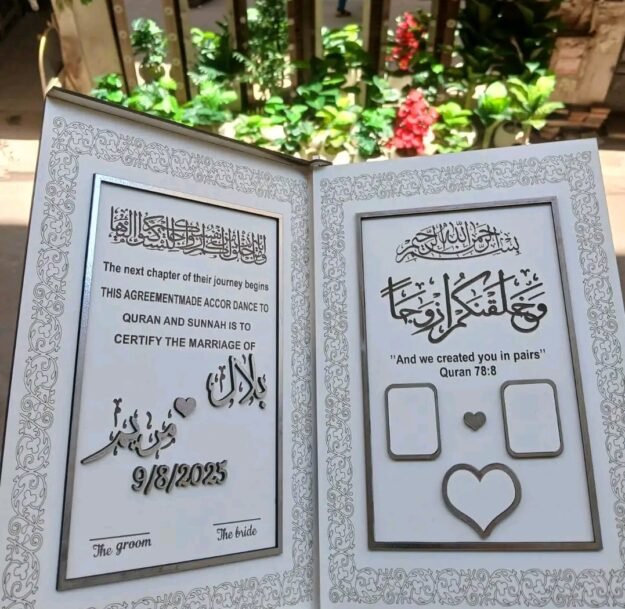 The next chapter of their journey begins
THIS AGREEMENTMADE ACCOR DANCE TO
QURAN AND SUNNAH IS TO
CERTIFY THE MARRIAGE OF
بلال
مريم
9/8/2025
The groom
The bride
بسم الله الرحمن الرحيم
وَخَلَقْنَٰكُمْ أَزْوَٰجًا
"And we created you in pairs"
Quran 78:8